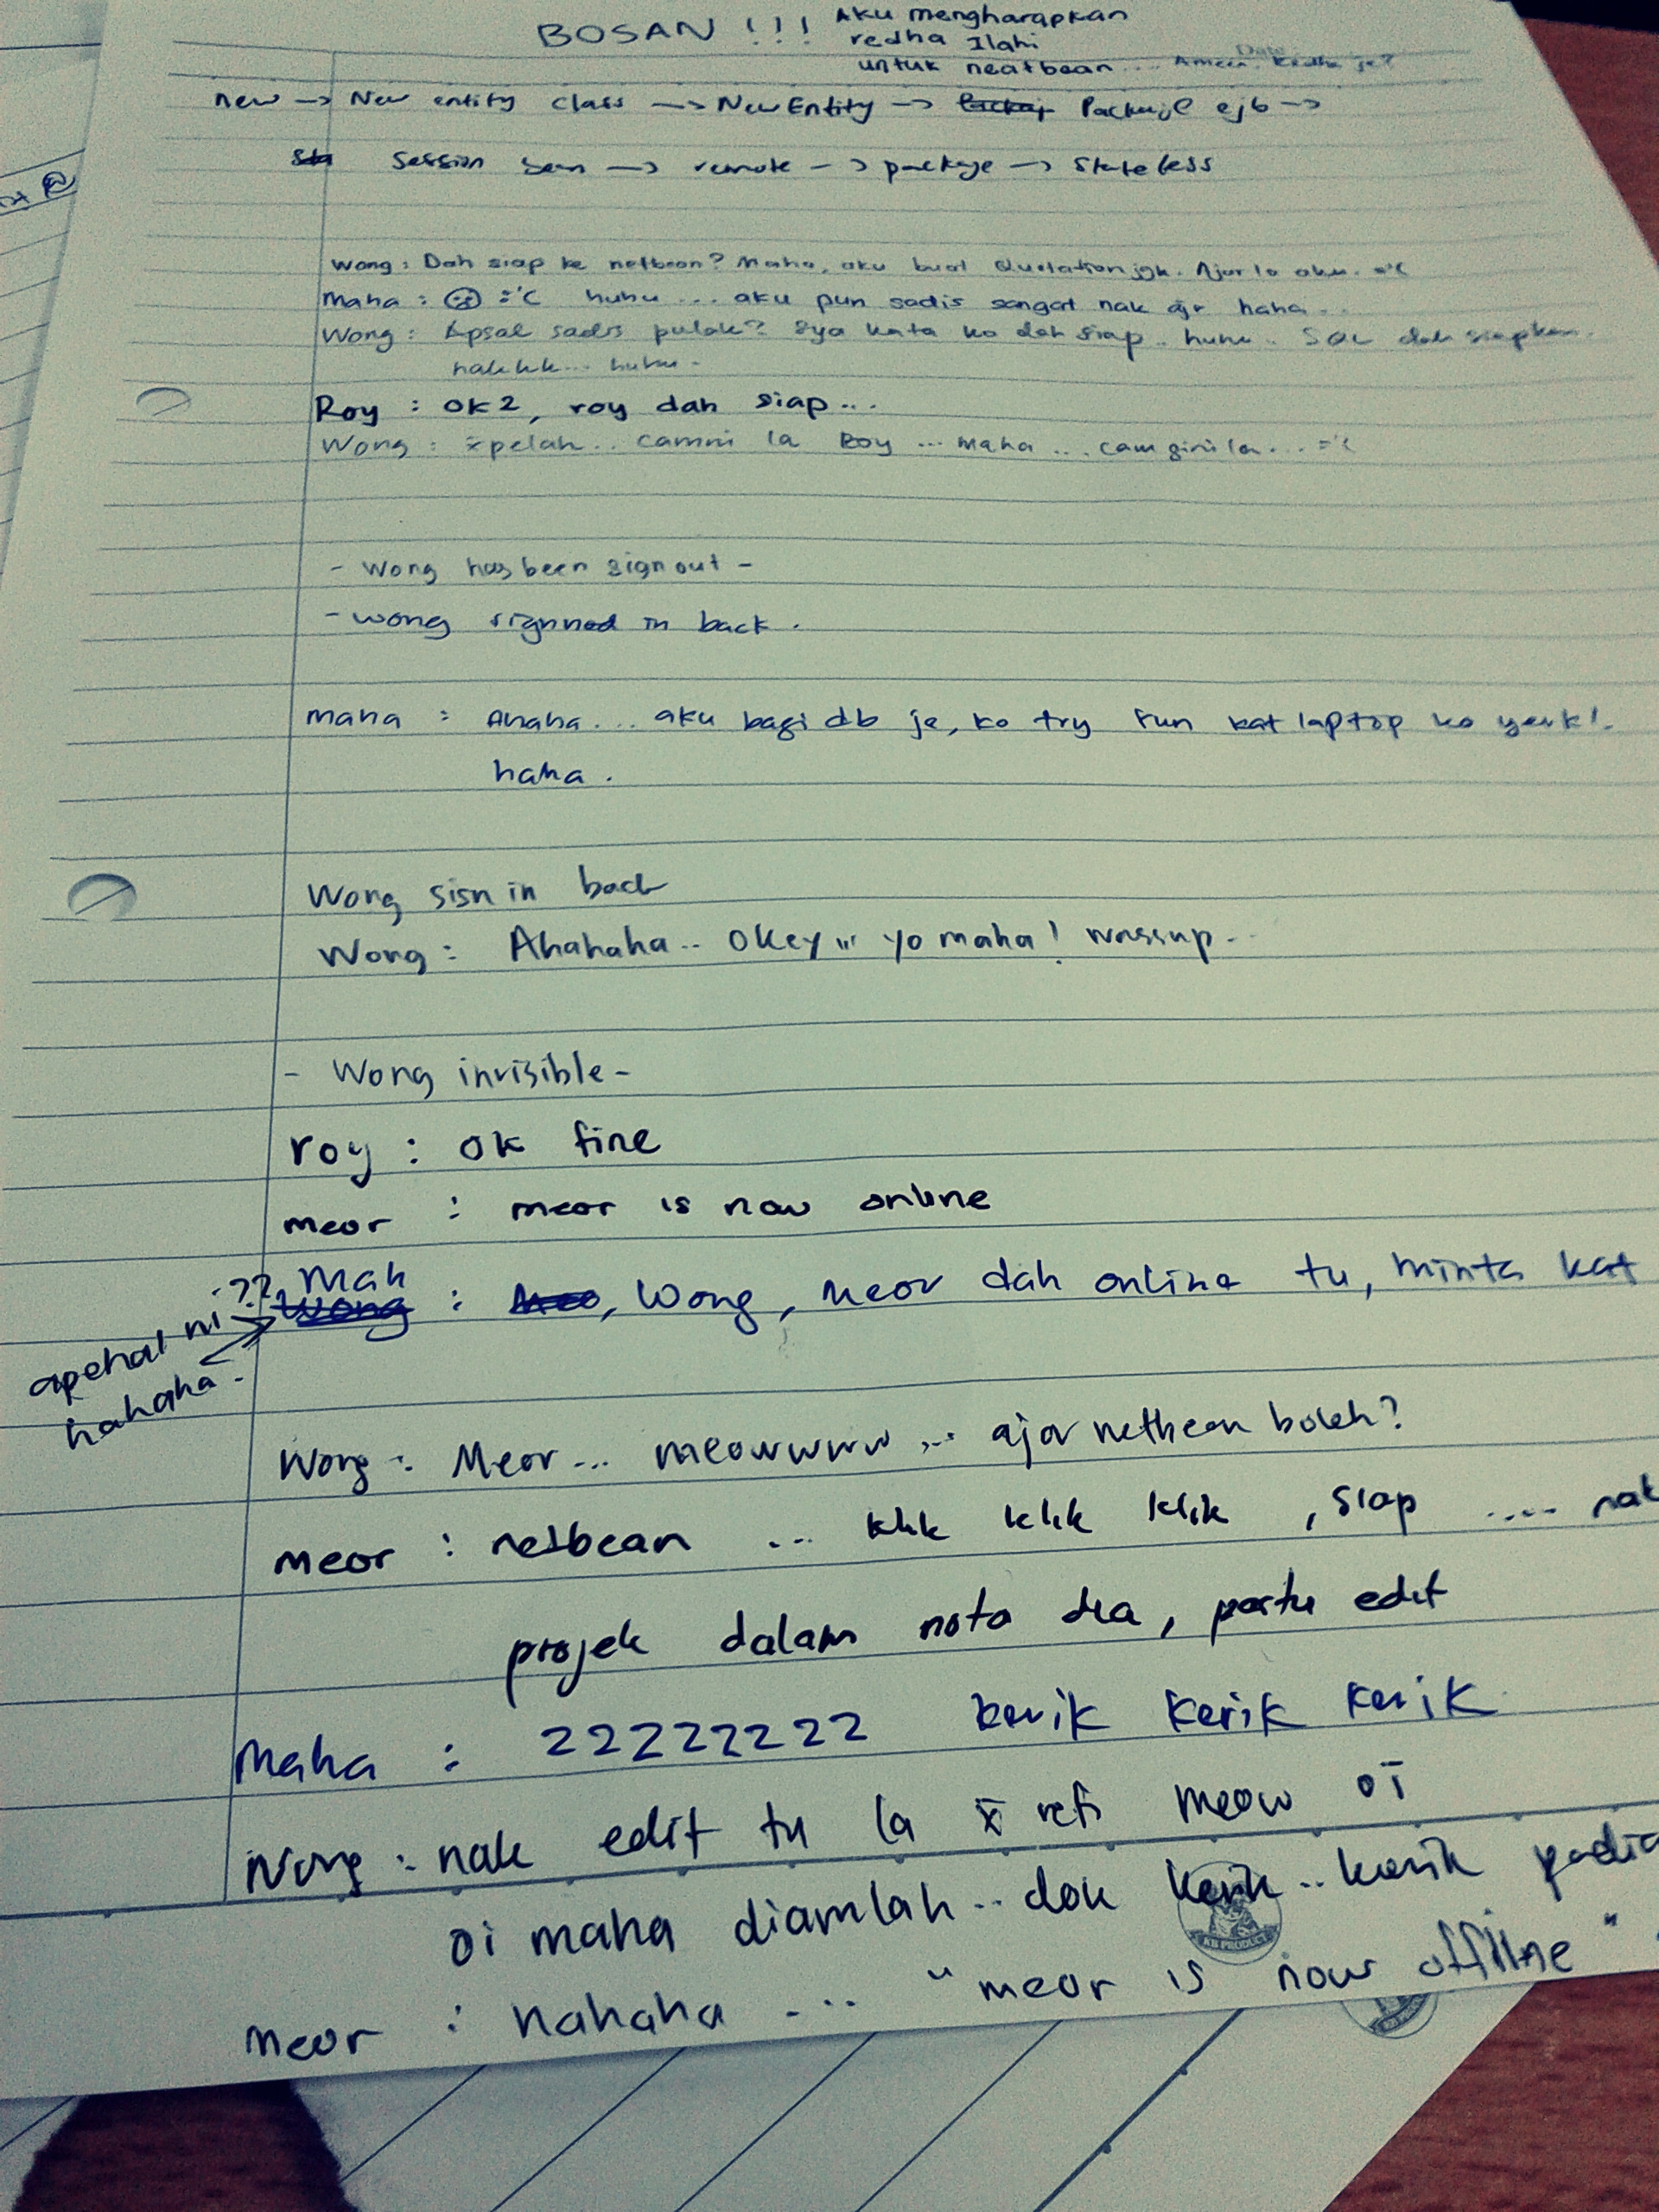 BOSAN !!! Aku mengharapkan
redha Ilahi
untuk neatbean... Ameen. Redha je?
Date
new → New entity class → NewEntity → Package ejb →
Session bean → remote → package → Stateless
Wong : Dah siap ke netbean? Maha, aku buat Quotation jgk. Ajar la aku. ='C
Maha : ='C huhu ... aku pun sadis sangat nak ajr haha..
Wong : Apsal sadis pulak? Sya kata ko dah siap.. huhu.. dah siapkan.
huhu..
Roy : OK2, roy dah siap...
Wong : xpelah.. camni la Roy ... Maha ... cam gini la... ='C
- Wong has been sign out -
- Wong signned in back .
maha : Ahaha.... aku bagi db je, ko try run kat laptop ko yerk!.
haha .
Wong sign in back
Wong : Ahahaha.. Okey... yo maha! wassup..
- Wong invisible -
roy : ok fine
meor : meor is now online
Mah
Wong : , Wong, Meor dah online tu, minta kat
apehal ni ??
hahaha -
Wong : Meor... meowwww ... ajar netbean boleh?
meor : netbean ... klik klik klik , siap .... nak
projek dalam nota dia, pastu edit
Maha : zzzzzzzz kerik kerik kerik
Wong : nak edit tu la x reti meow oi
oi maha diamlah.. dok kerik.. kerik padia
meor : hahaha ... "meor is now offline"
KB PRODUCT